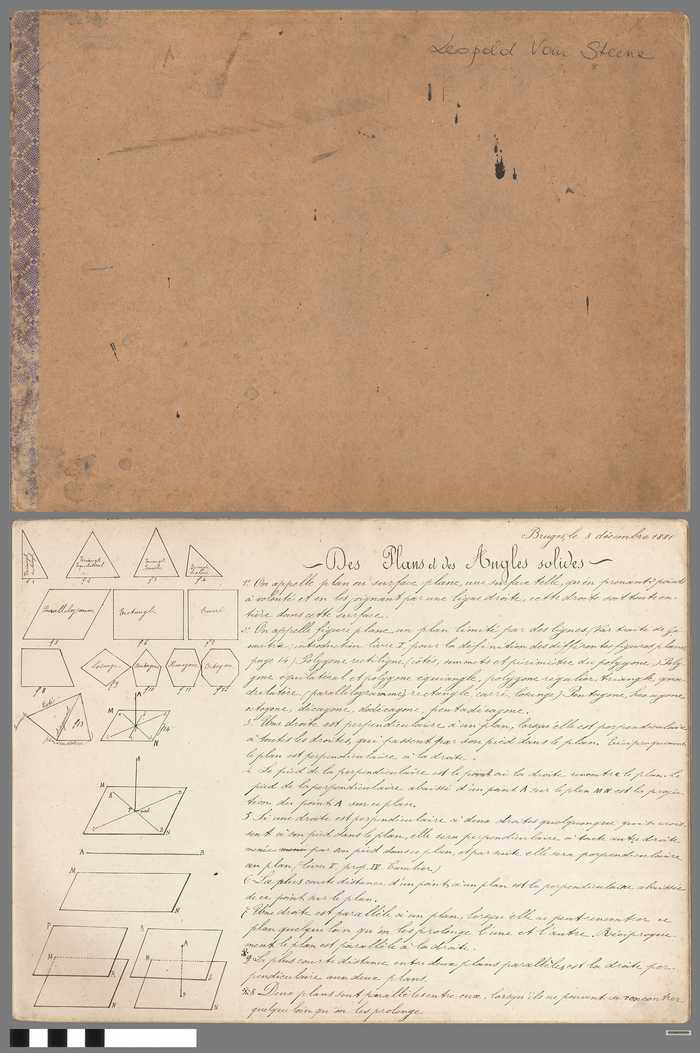 Leopold Van Steene
Bruges, le 8 décembre 1881
Des Plans et des Angles solides
1° On appelle plan ou surface plane, une surface telle, qu'en prenant 2 points
à volonté et en les joignant par une ligne droite, cette droite soit toute en-
tière dans cette surface.
2° On appelle figure plane un plan limité par des lignes, (Voir traité de Géo
métrie; introduction livre I pour la définition des différentes figures planes
page 14) Polygone rectiligne (côtés, sommets et périmètre du polygone.) Poly
gone equilateral et polygone equiangle, polygone regulier, triangle, qua
drilatère, (parallélogramme, rectangle, carré, losange) Pentagone, hexagone
octogone, décagone, dodécagone, pentadécagone.
3° Une droite est perpendiculaire à un plan, lorsqu'elle est perpendiculaire
à toutes les droites, qui passent par son pied dans le plan. Réciproquement
le plan est perpendiculaire à la droite.
4 Le pied de la perpendiculaire est le point où la droite rencontre le plan. Le
pied de la perpendiculaire abaissée d'un point A sur le plan MN est la projec
tion du point A sur ce plan.
5. Si une droite est perpendiculaire à deux droites quelconques qui se croi
sent à son pied dans le plan, elle sera perpendiculaire à toute autre droite
menée par son pied dans ce plan, et par suite elle sera perpendiculaire
au plan, (livre V prop. IV
6 La plus courte distance d'un point à un plan est la perpendiculaire abaissée
de ce point sur le plan.
7 Une droite est parallèle à un plan, lorsqu'elle ne peut rencontrer ce
plan quelque loin qu'on les prolonge l'une et l'autre. Réciproque
ment le plan est parallèle à la droite.
9 La plus courte distance entre deux plans parallèles est la droite per-
pendiculaire aux deux plans.
8 Deux plans sont parallèles entre eux, lorsqu'ils ne peuvent se rencontrer
quelque loin qu'on les prolonge.
Triangle
Triangle Equilatéral
Triangle Isocèle
Triangle
f 1
f 2
f 3
f 4
Parallélogramme
Rectangle
Carré
f 5
f 6
f 7
Losange
Pentagone
Hexagone
Octogone
f 8
f 9
f 10
f 11
f 12
f 13
A
M
N
f 14
A
M
P
N
A B
M
N
P
M
N
A
M
B
N